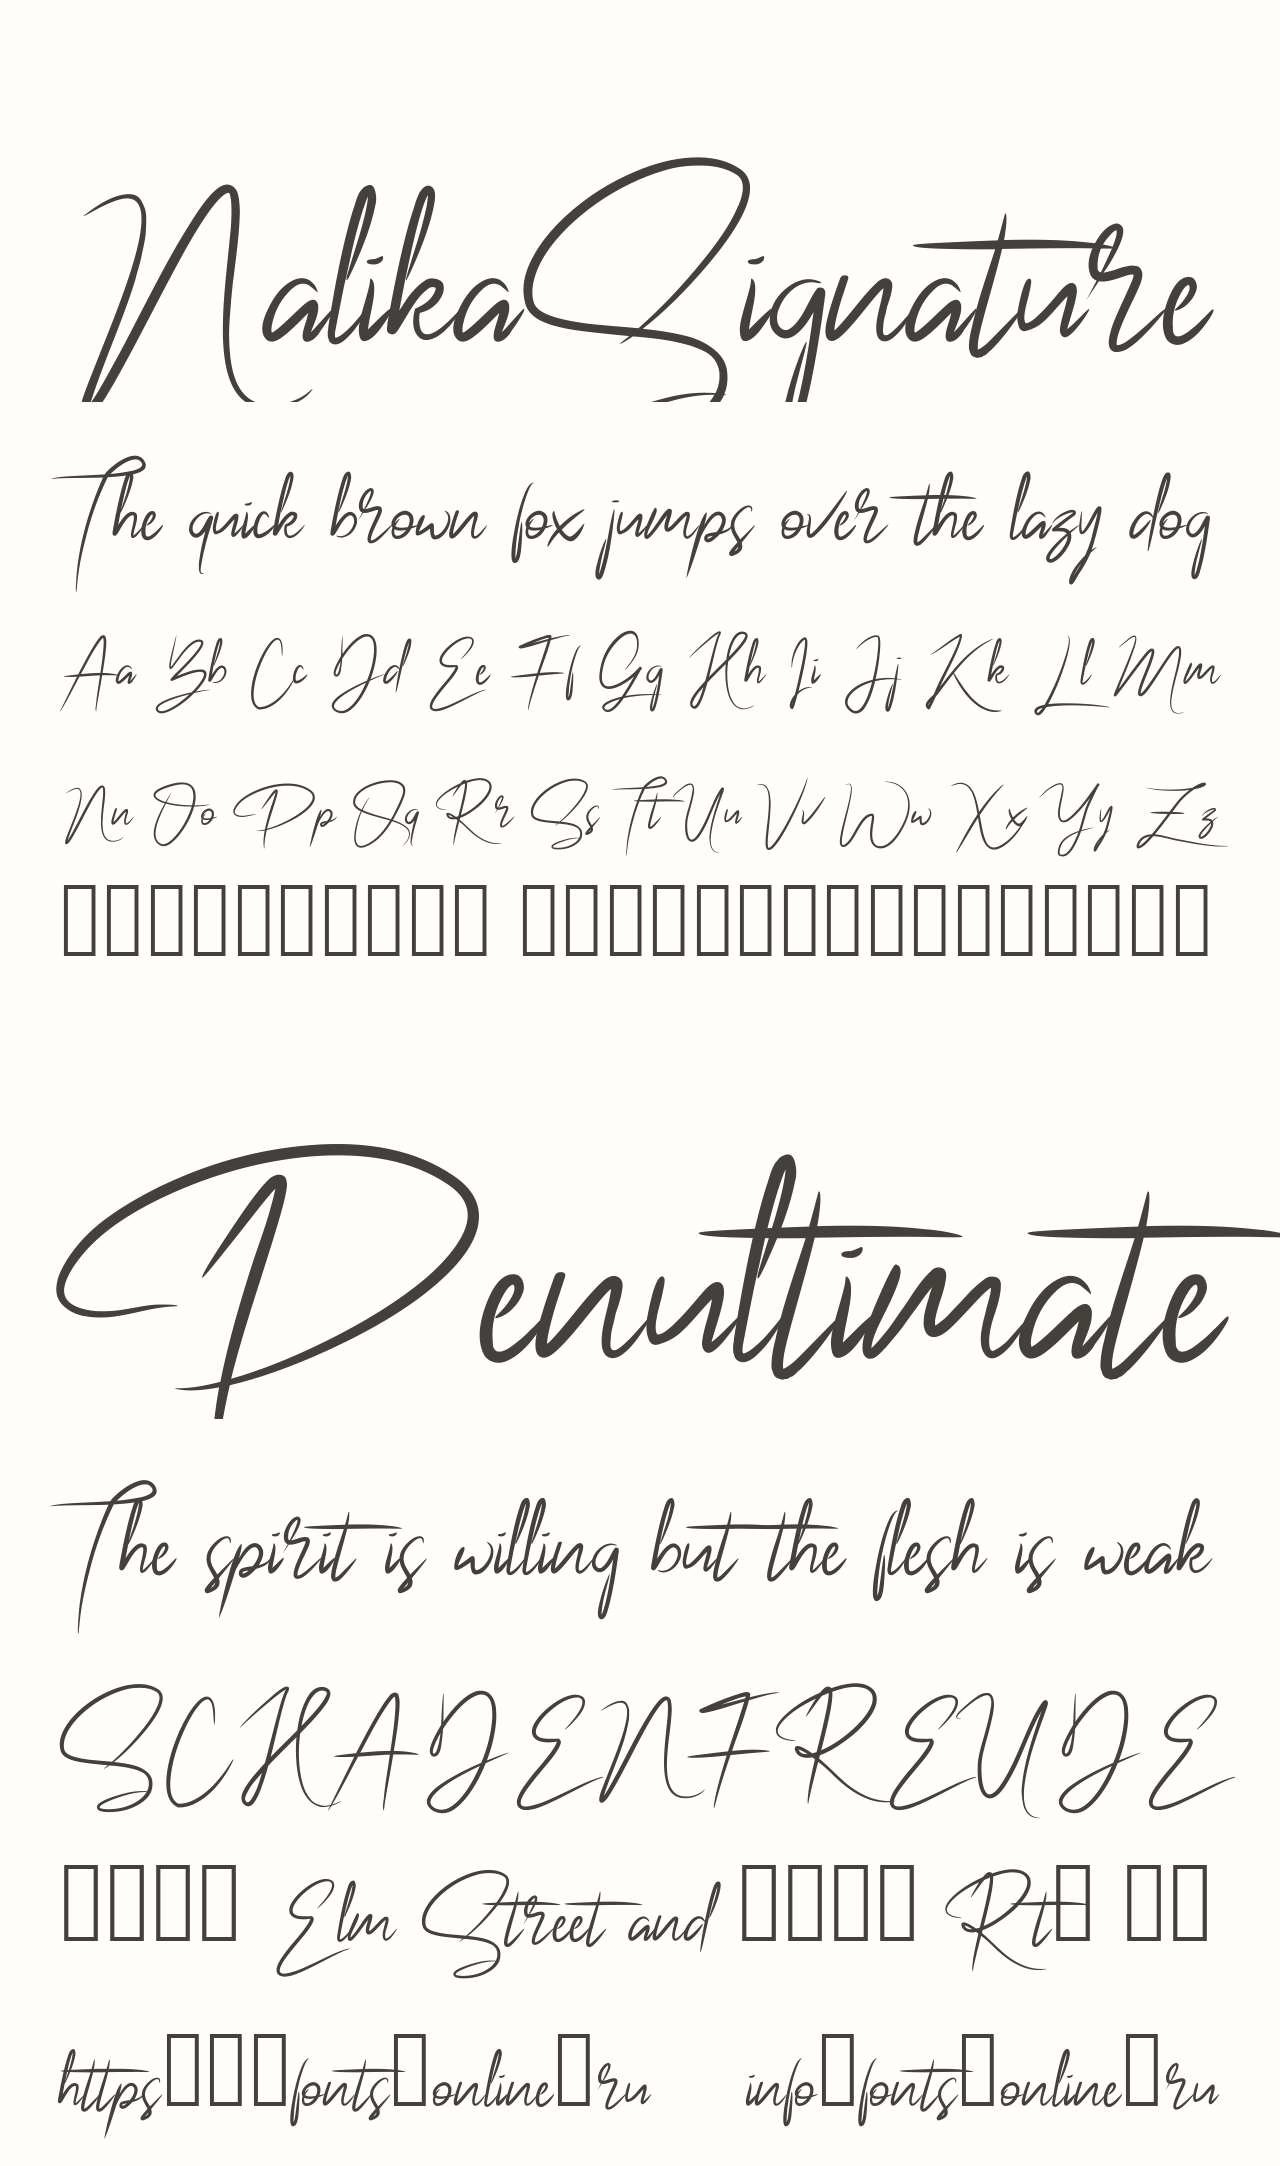 NalikaSignature
The quick brown fox jumps over the lazy dog
Aa Bb Cc Dd Ee Ff Gg Hh Ii Jj Kk Ll Mm
Nn Oo Pp Qq Rr Ss Tt Uu Vv Ww Xx Yy Zz
Penultimate
The spirit is willing but the flesh is weak
SCHADENFREUDE
Elm Street and Rt
https fonts online ru info fonts online ru